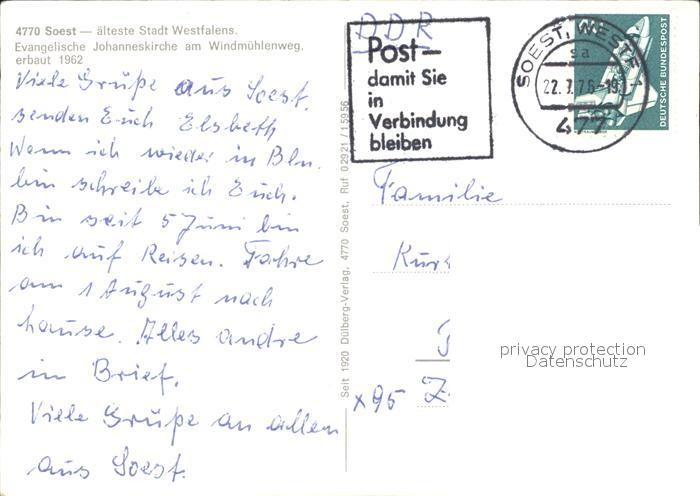 4770 Soest — älteste Stadt Westfalens.
Evangelische Johanneskirche am Windmühlenweg,
erbaut 1962
Viele Grüße aus Soest.
senden Euch Elsbeth
Wenn ich wieder in Bln.
bin schreibe ich Euch.
Bin seit 5 Juni bin
ich auf Reisen. Fahre
am 1 August nach
hause. Alles andre
in Brief.
Viele Grüße an allen
aus Soest.
Seit 1920 Dülberg-Verlag, 4770 Soest, Ruf 02921 / 15956
DDR
Post –
damit Sie
in
Verbindung
bleiben
SOEST, WESTF
sa
22.7.76-19
477
DEUTSCHE BUNDESPOST
Familie
Kurt
x95 Z
privacy protection
Datenschutz